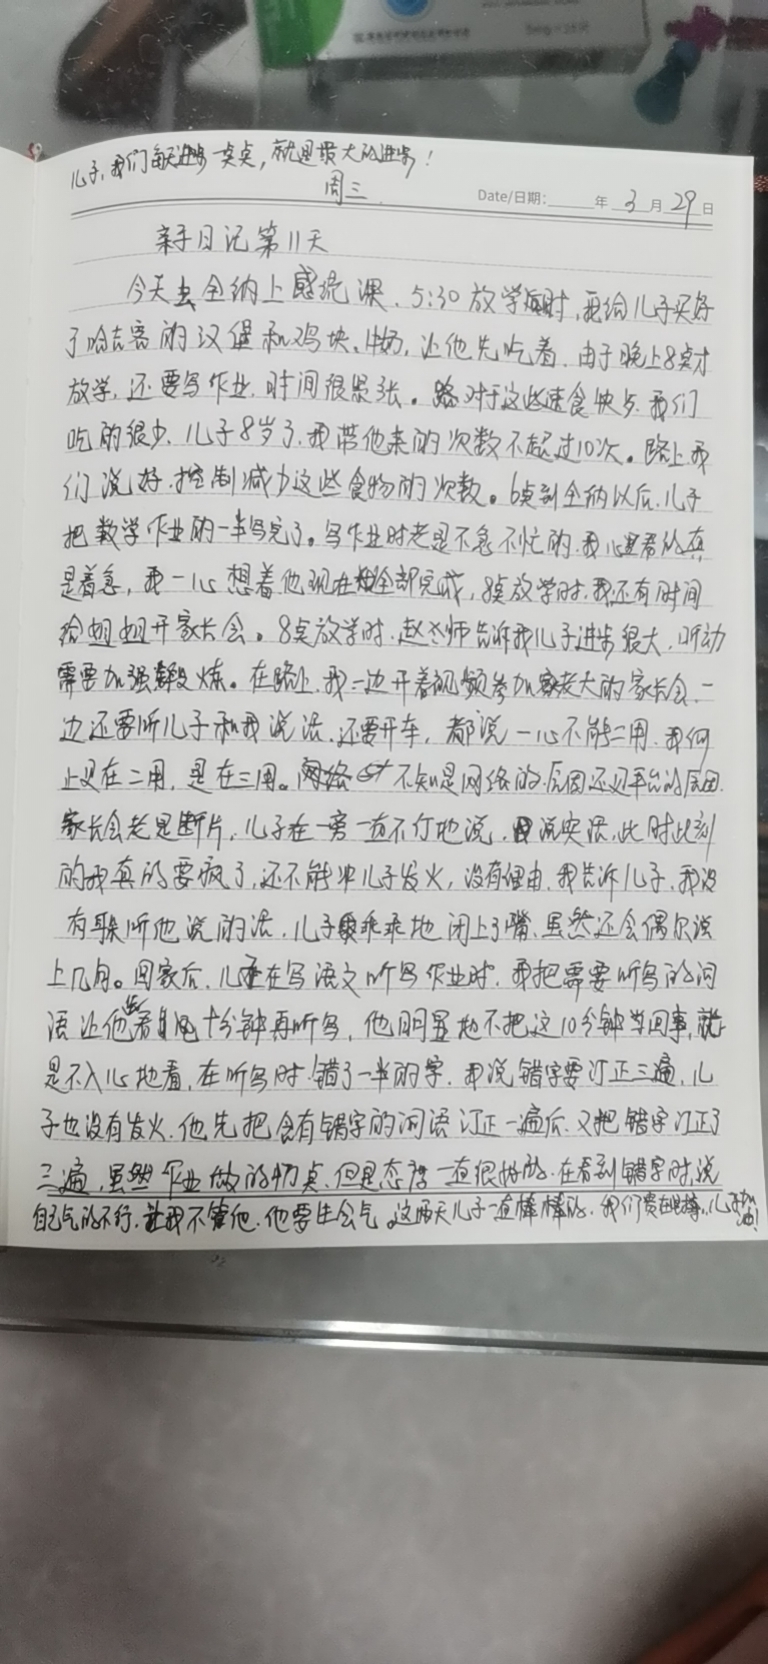 儿子,我们每天进步一点点,就是最大的进步!
周三
Date/日期: 年 3 月 29 日
亲子日记第11天
今天去金纳上感统课,5:30放学时,我给儿子买好
了哈吉客的汉堡和鸡块、牛奶,让他先吃着,由于晚上8点才
放学,还要写作业,时间很紧张。对于这些速食快点,我们
吃的很少,儿子8岁了,我带他来的次数不超过10次。路上我
们说好,控制减少这些食物的次数。6点到金纳以后,儿子
把数学作业的一半写完了。写作业时老是不急不忙的,我心里看的真
是着急,我一心想着他现在全部完成,8点放学时,我还有时间
给姐姐开家长会。8点放学时,赵老师告诉我儿子进步很大,听动
需要加强锻炼。在路上,我一边开着视频参加老大的家长会,一
边还要听儿子和我说话,还要开车,都说一心不能二用,我何
止是在二用,是在三用。不知是网络的原因还是平台的原因,
家长会老是断片,儿子在一旁一直不停地说,说实话,此时此刻
的我真的要疯了,还不能冲儿子发火,没有理由,我告诉儿子,我没
有在听他说的话,儿子乖乖地闭上了嘴,虽然还会偶尔说
上几句。回家后,儿子在写语文听写作业时,我把需要听写的词
语让他先看十分钟再听写,他明显地不把这10分钟当回事,就
是不入心地看,在听写时,错了一半的字,我说错字要订正三遍,儿
子也没有发火,他先把含有错字的词语订正一遍后,又把错字订正了
三遍,虽然作业做的慢点,但是态度一直很好的,在看到错字时,说
自己气的不行,让我不管他,他要生会气。这两天儿子一直棒棒的,我们贵在坚持,儿子加油!